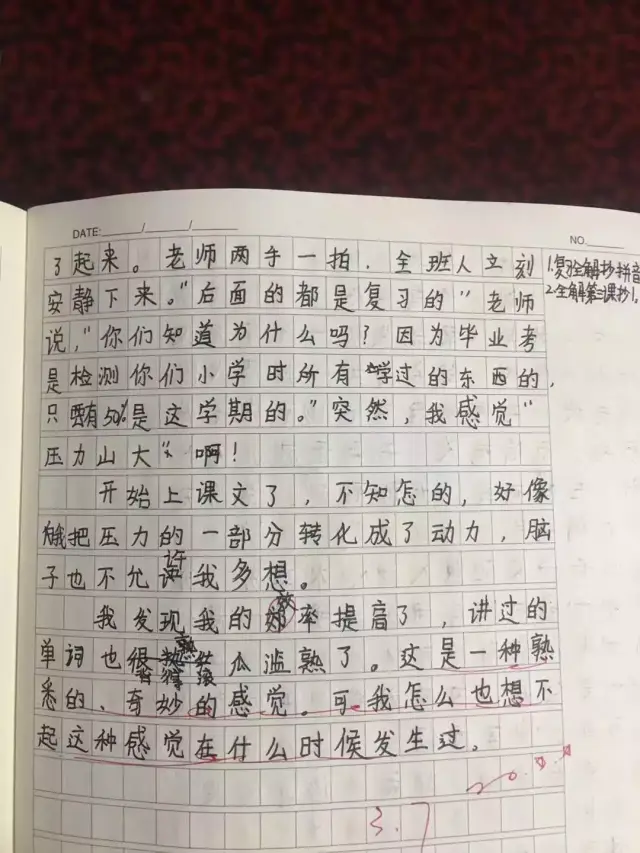 DATE: / /
NO.
了起来。老师两手一拍，全班人立刻
安静下来。"后面的都是复习的"老师
说，"你们知道为什么吗？因为毕业考
是检测你们小学时所有学过的东西的，
只有50%是这学期的。"突然，我感觉"
压力山大"啊！
开始上课文了，不知怎的，好像
把压力的一部分转化成了动力，脑
子也不允许我多想。
我发现我的效率提高了，讲过的
单词也背得滚瓜滥熟了。这是一种熟
悉的、奇妙的感觉。可我怎么也想不
起这种感觉在什么时候发生过。
3.7
1.复习全解抄拼音
2.全解第三课抄1,